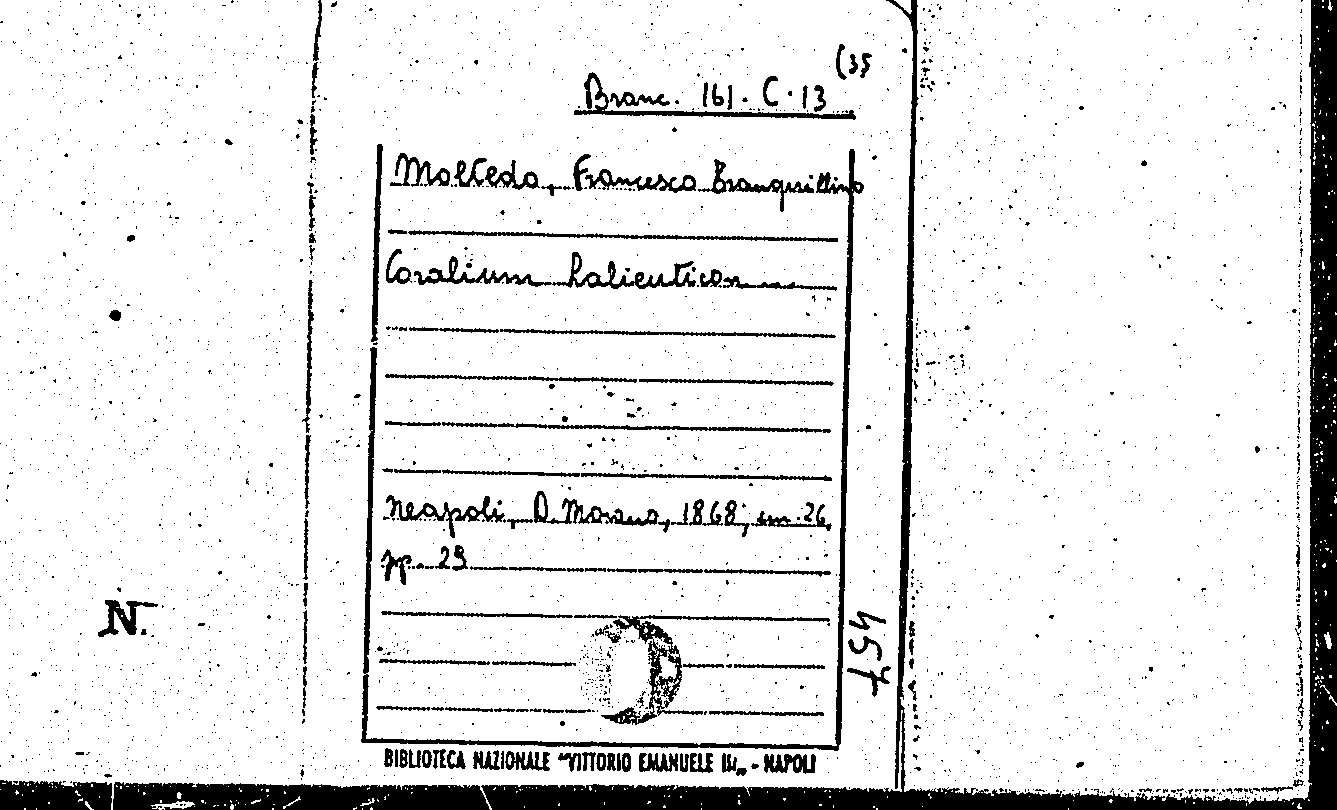 (35
Branc. 161. C. 13
Moltedo, Francesco Tranquillino
Coralium halieuticon ...
Neapoli, D. Morano, 1868; cm. 26,
pp. 29
N.
457
BIBLIOTECA NAZIONALE "VITTORIO EMANUELE III„ - NAPOLI